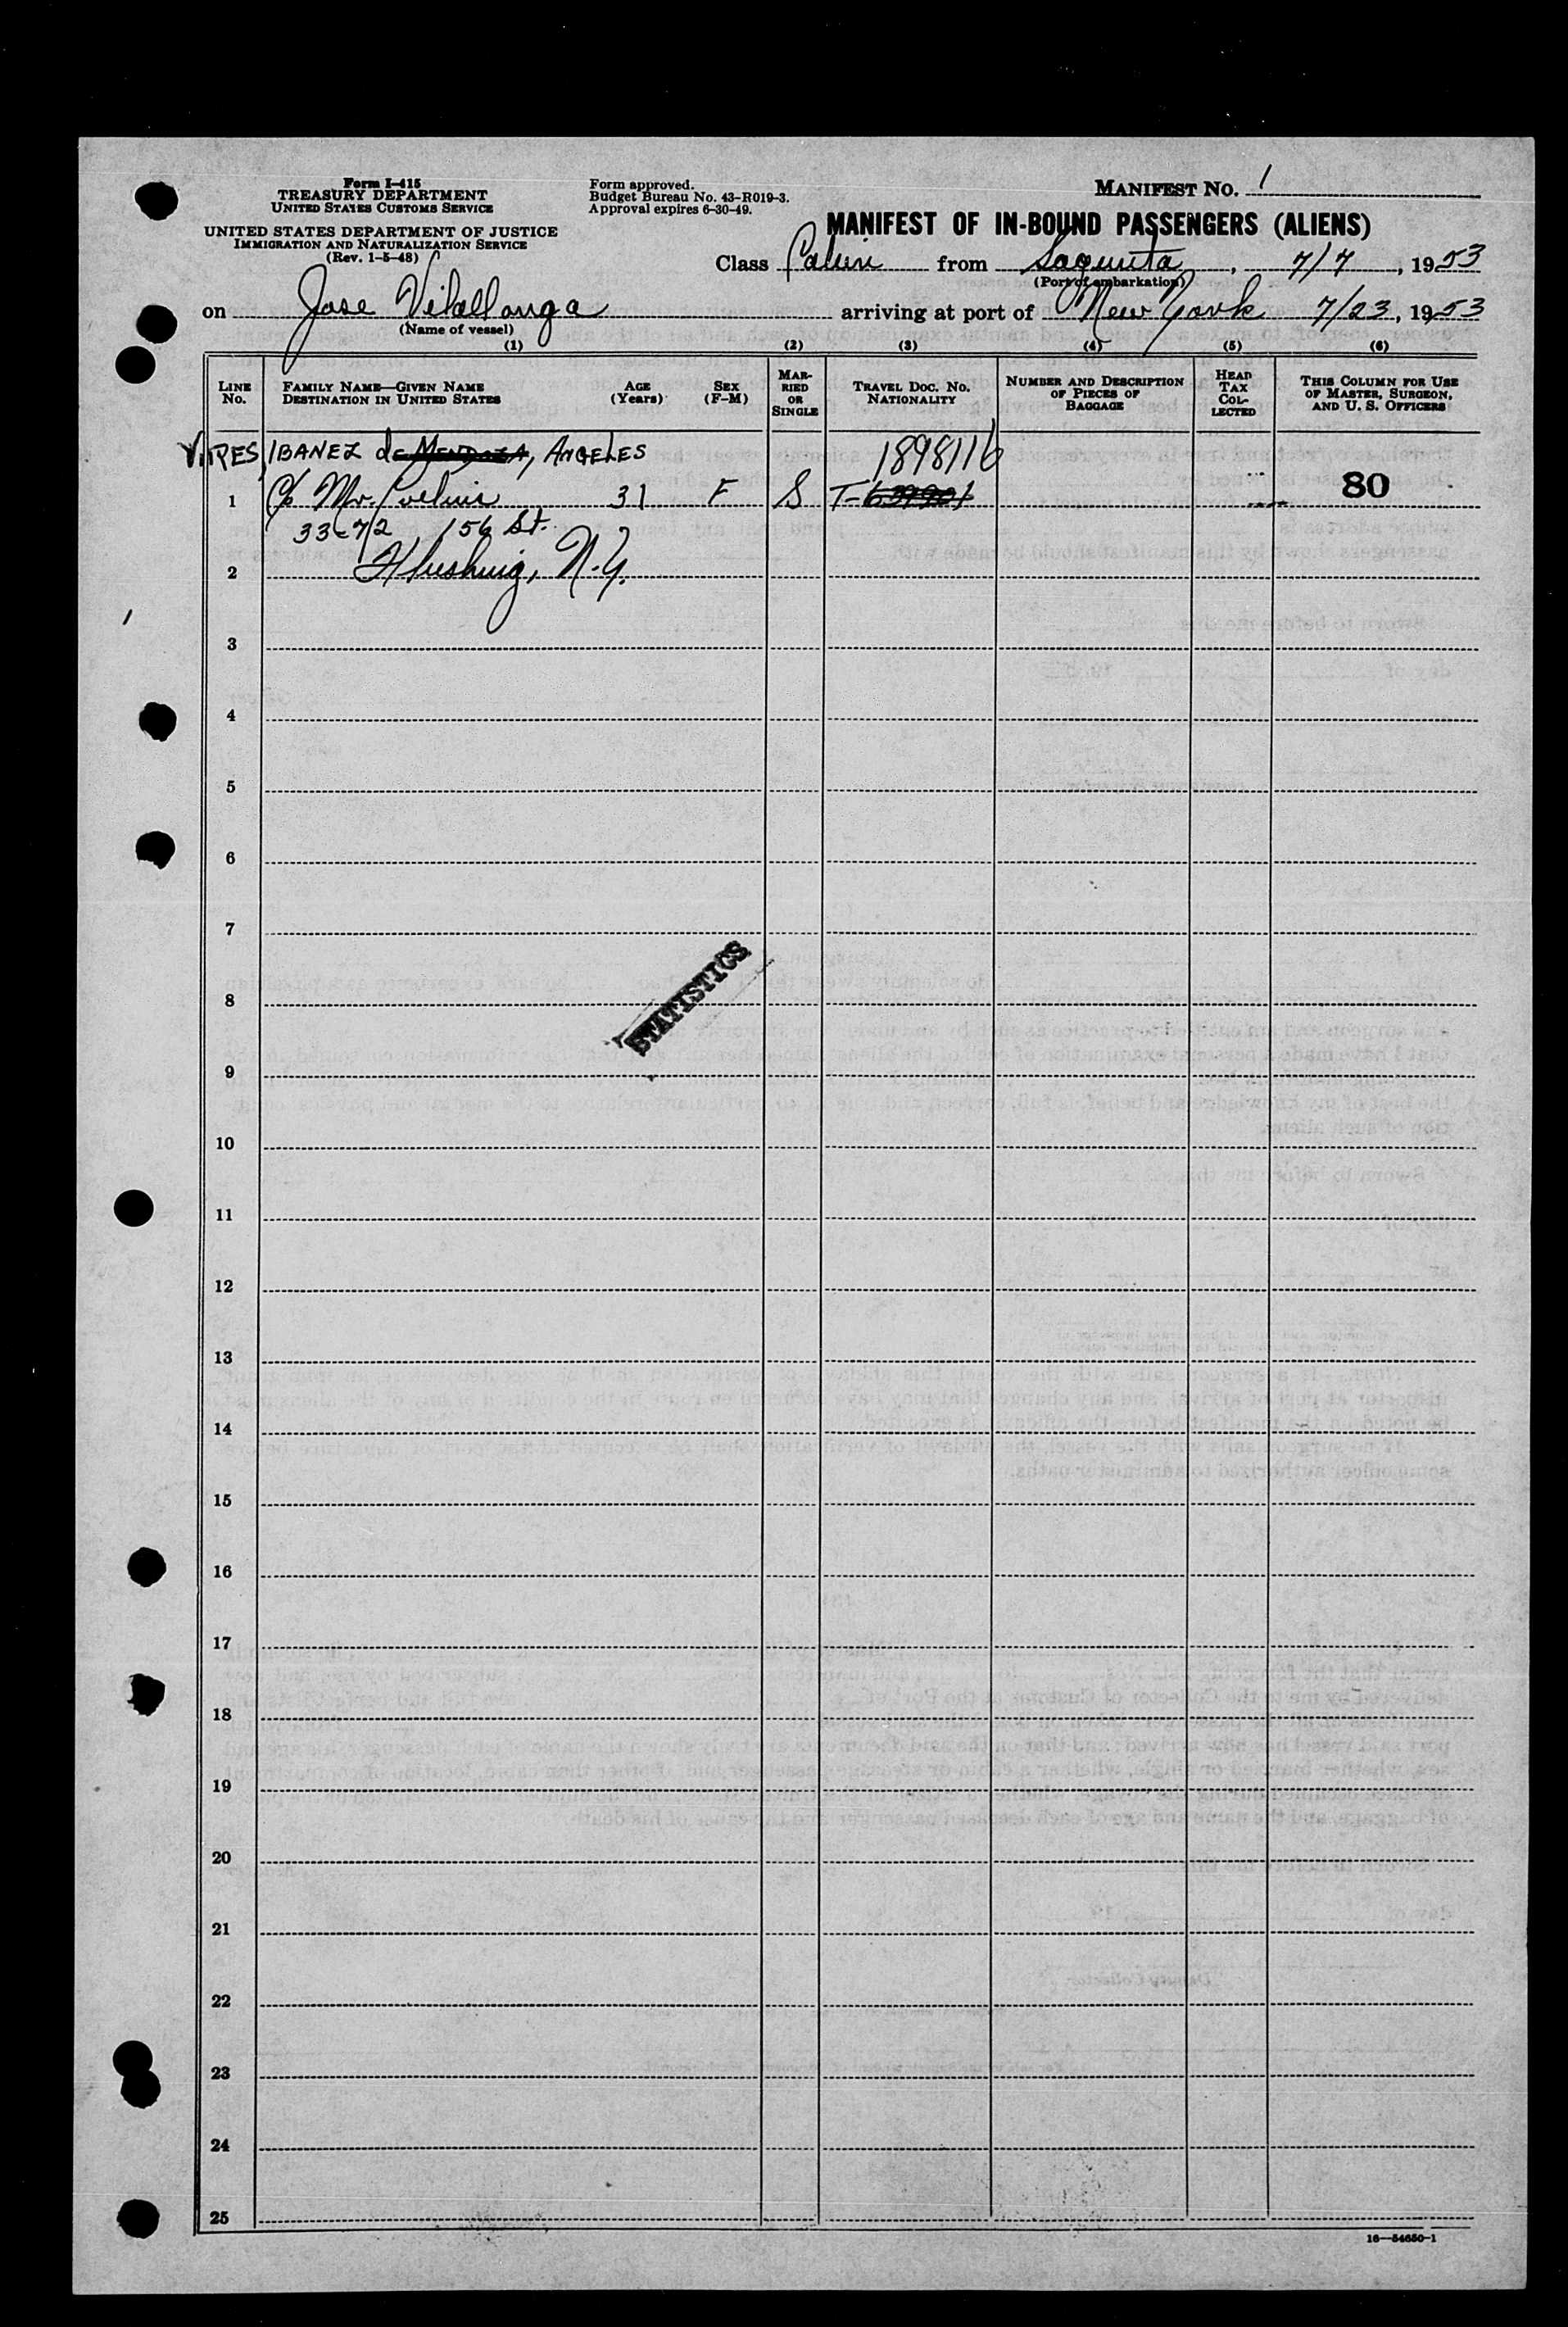 Form I-415
TREASURY DEPARTMENT
UNITED STATES CUSTOMS SERVICE
UNITED STATES DEPARTMENT OF JUSTICE
IMMIGRATION AND NATURALIZATION SERVICE
(Rev. 1-5-48)
Form approved.
Budget Bureau No. 43-R019-3.
Approval expires 6-30-49.
MANIFEST NO. 1
MANIFEST OF IN-BOUND PASSENGERS (ALIENS)
Class Cabin from Sagunta, 7/7, 1953
(Port of embarkation)
on Jose Vilallonga arriving at port of New York 7/23, 1953
(Name of vessel)
(1) (2) (3) (4) (5) (6)
LINE NO.
FAMILY NAME—GIVEN NAME
DESTINATION IN UNITED STATES
AGE (Years)
SEX (F-M)
MARRIED OR SINGLE
TRAVEL DOC. NO.
NATIONALITY
NUMBER AND DESCRIPTION OF PIECES OF BAGGAGE
HEAD TAX COLLECTED
THIS COLUMN FOR USE OF MASTER, SURGEON, AND U. S. OFFICERS
IBANEZ de MENDOZA, ANGELES 1898116
1 c/o Mr. 31 F S T- 80
33-72 156 St.
2 Flushing, N.Y.
3
4
5
6
7
STATISTICS
8
9
10
11
12
13
14
15
16
17
18
19
20
21
22
23
24
25
16—54650-1